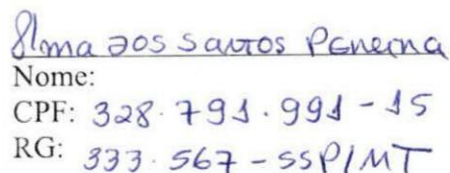 Ilma dos Santos Pereira
Nome:
CPF: 328.791.991-15
RG: 333.567-SSP/MT